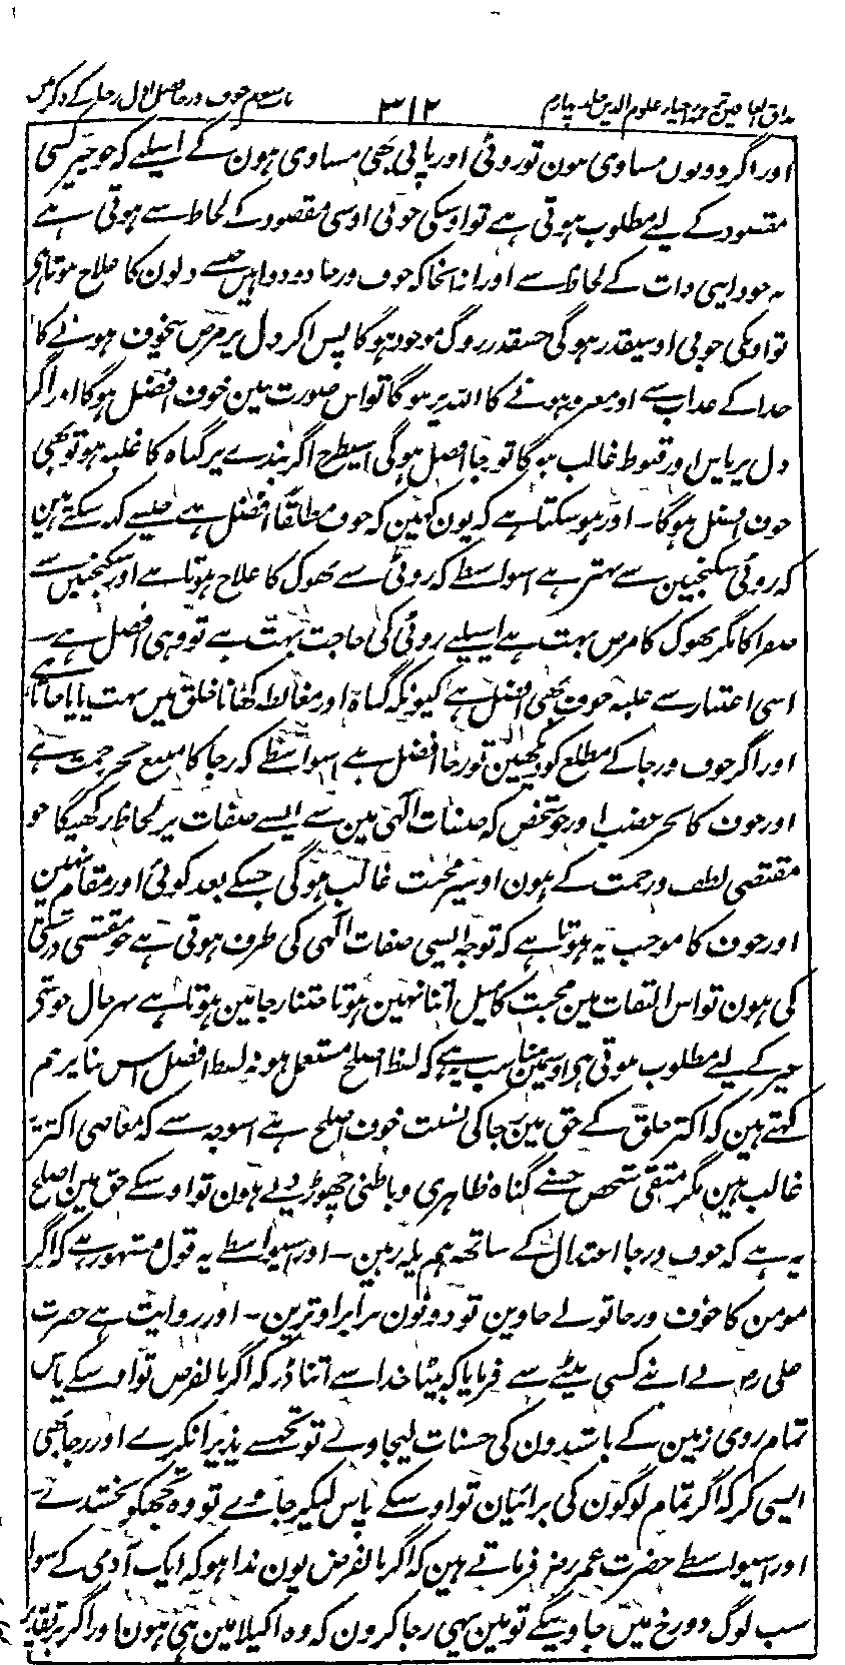 مذاق العارفین ترجمہ احیاء علوم الدین جلد چہارم ۳۱۲ باب سوم خوف ورجا فصل اول رجا کے ذکر میں
اور اگر دونوں مساوی ہوں تو روٹی اور پانی بھی مساوی ہون گے اسلیے کہ جو چیز کسی
مقصود کے لیے مطلوب ہوتی ہے تو اوسکی خوبی اوسی مقصود کے لحاظ سے ہوتی ہے
نہ خود اپنی ذات کے لحاظ سے اور ازانجا کہ خوف ورجا دو دوا ہیں جنسے دلون کا علاج ہوتا ہی
تو اونکی خوبی اوسیقدر ہوگی جسقدر روگ موجود ہوگا پس اگر دل پر مرض بیخوف ہونے کا
خدا کے عذاب سے اور مغرور ہونے کا اللہ پر ہوگا تو اس صورت مین خوف افضل ہوگا اور اگر
دل پر یاس اور قنوط غالب ہوگا تو رجا افضل ہوگی اسیطرح اگر بندے پر گناہ کا غلبہ ہو تو بھی
خوف افضل ہوگا۔ اور ہو سکتا ہے کہ یون کہین کہ خوف مطلقاً افضل ہے جیسے کہ سکتے ہین
کہ روٹی سکنجبین سے بہتر ہے اسواسطے کہ روٹی سے بھوک کا علاج ہوتا ہے اور سکنجبین سے
صفرا کا مگر بھوک کا مرض بہت ہے اسلیے روٹی کی حاجت بہت ہے تو وہی افضل ہے
اسی اعتبار سے غلبہ خوف بھی افضل ہے کیونکہ گناہ اور مغالطہ کھانا خلق میں بہت پایا جاتا ہے
اور اگر خوف ورجا کے مطلع کو دیکھین تو رجا افضل ہے اسواسطے کہ رجا کا منبع بحر رحمت ہے
اور خوف کا بحر غضب اور جو شخص کہ صفات الٰہی مین سے ایسے صفات پر لحاظ رکھیگا جو
مقتضی لطف ورحمت کے ہون اوسپر محبت غالب ہوگی جسکے بعد کوئی اور مقام نہین
اور خوف کا موجب یہ ہوتا ہے کہ توجہ ایسی صفات الٰہی کی طرف ہوتی ہے جو مقتضی درشتی
کی ہون تو اس التفات مین محبت کا میل اتنا نہین ہوتا جتنا رجا مین ہوتا ہے بہر حال جو شے
غیر کے لیے مطلوب ہوتی ہی اوسمین مناسب یہ ہے کہ لفظ اصلح مستعمل ہو نہ لفظ افضل اس بنا پر ہم
کہتے ہین کہ اکثر خلق کے حق مین رجا کی نسبت خوف اصلح ہے اسوجہ سے کہ معاصی اکثر پر
غالب ہین مگر متقی شخص جسنے گناہ ظاہری و باطنی چھوڑ دیے ہون تو اوسکے حق مین اصلح
یہ ہے کہ خوف ورجا اعتدال کے ساتھ ہم پلہ رہین۔ اور اسیواسطے یہ قول مشہور ہے کہ اگر
مومن کا خوف ورجا تولے جاوین تو دونون برابر اوترین۔ اور روایت ہے حضرت
علی رض نے اپنے کسی بیٹے سے فرمایا کہ بیٹا خدا سے اتنا ڈر کہ اگر بالفرض تو اوسکے پاس
تمام روی زمین کے باشندون کی حسنات لیجاوے تو تجھسے پذیرا نکرے اور رجا بھی
ایسی کر کہ اگر تمام لوگون کی برائیان تو اوسکے پاس لیکر جاوے تو وہ تجھکو بخشدے
اور اسیواسطے حضرت عمر رض فرماتے ہین کہ اگر بالفرض یون ندا ہو کہ ایک آدمی کے سوا
سب لوگ دوزخ میں جاوینگے تو مین یہی رجا کرون کہ وہ اکیلا مین ہی ہون اور اگر بر تقدیر